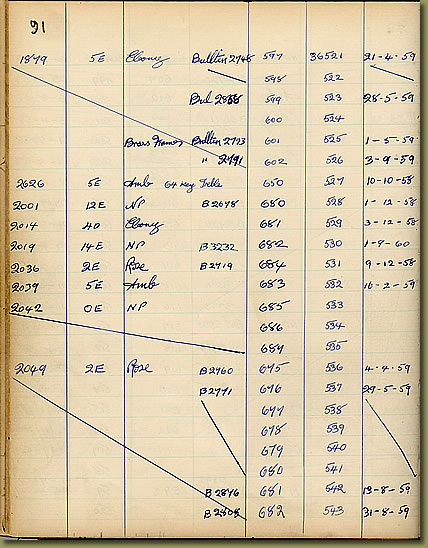 91
1879 5E Ebony Bulltin 2748 597 36521 21-4-59
598 522
Bul 599 523 28-5-59
600 524
Brass Frames Bulltin 2773 601 525 1-5-59
" 2791 602 526 3-9-59
2626 5E Amb 64 Key Treble 650 527 10-10-58
2001 12E NP B2678 680 528 1-12-58
2014 40 Ebony 681 529 3-12-58
2019 14E NP B3232 682 530 1-9-60
2036 2E Rose B2719 684 531 9-12-58
2039 5E Amb 683 532 16-2-59
2042 0E NP 685 533
686 534
689 535
2049 2E Rose B2760 675 536 4-4-59
B2771 676 537 29-5-59
677 538
678 539
679 540
680 541
B2876 681 542 13-8-59
B2808 682 543 31-8-59